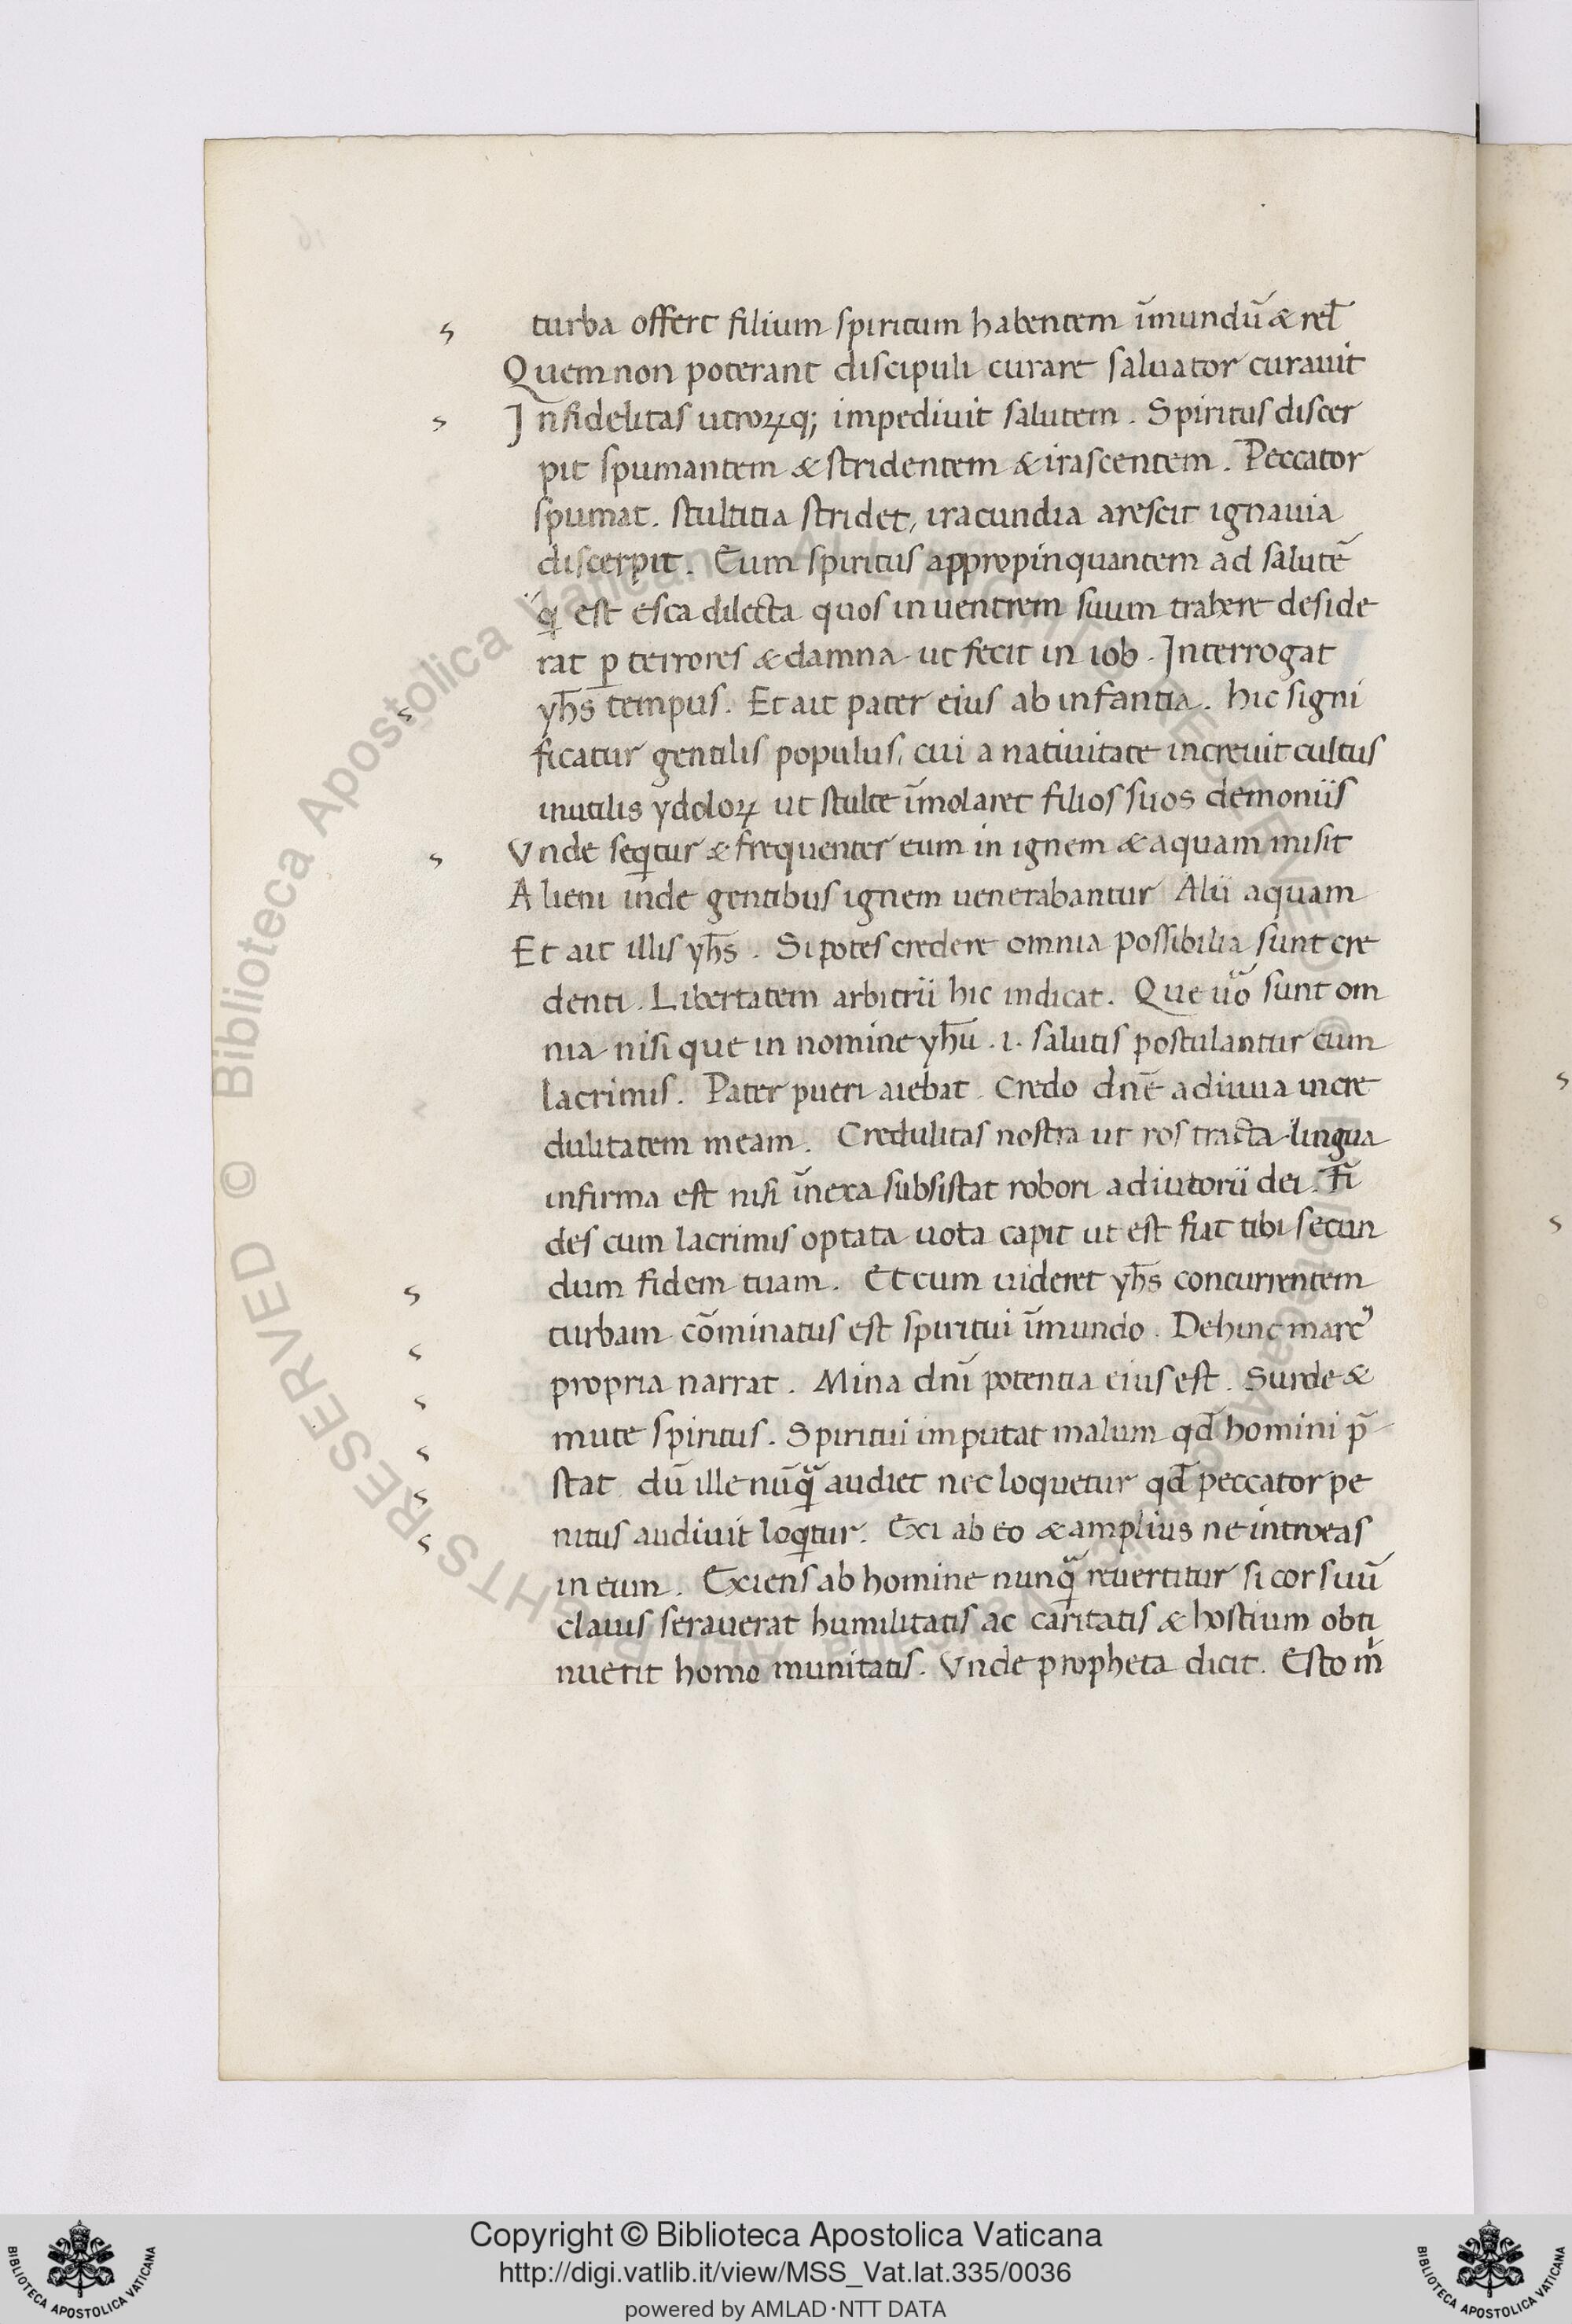 turba offert filium spiritum habentem īmundū & rel̄
Quem non poterant discipuli curare saluator curauit
Infidelitas utroꝝq; impediuit salutem. Spiritus discer
pit spumantem & stridentem & irascentem. Peccator
spumat. stultitia stridet, iracundia arescit ignauia
discerpit. Cum spiritus appropinquantem ad salutē
est esca dilecta quos in uentrem suum trahere deside
rat ꝑ terrores & damna ut fecit in iob. Interrogat
yh̄s tempus. Et ait pater eius ab infantia. hic signi
ficatur gentilis populus, cui a natiuitate increuit cultus
inutilis ydoloꝝ ut stulte īmolaret filios suos demoniis
Vnde seqitur & frequenter eum in ignem & aquam misit
Alieni inde gentibus ignem uenerabantur Alii aquam
Et ait illis yh̄s. Si potes credere omnia possibilia sunt cre
denti. Libertatem arbitrii hic indicat. Que uo sunt om
nia nisi que in nomine yh̄u .i. salutis postulantur cum
lacrimis. Pater pueri aiebat. Credo dn̄e adiuua incre
dulitatem meam. Credulitas nostra ut ros tracta lingua
infirma est nisi īnexa subsistat robori adiutorii dei. Fi
des cum lacrimis optata uota capit ut est fiat tibi secun
dum fidem tuam. Et cum uideret yh̄s concurrentem
turbam cōminatus est spiritui īmundo. Dehinc marcꝰ
propria narrat. Mina dn̄i potentia eius est. Surde &
mute spiritus. Spiritui imputat malum qd̄ homini p̄
stat dū ille nūqᷓ audiet nec loquetur qd̄ peccator pe
nitus audiuit loqitur. Exi ab eo & amplius ne introeas
in eum. Exiens ab homine nunqᷓ reuertitur si cor suū
clauis serauerat humilitatis ac caritatis & hostium obti
nuerit homo munitatis. Vnde propheta dicit. Esto m
© Biblioteca Apostolica Vaticana ALL RIGHTS RESERVED
Copyright © Biblioteca Apostolica Vaticana
http://digi.vatlib.it/view/MSS_Vat.lat.335/0036
powered by AMLAD·NTT DATA
BIBLIOTECA APOSTOLICA VATICANA
BIBLIOTECA APOSTOLICA VATICANA